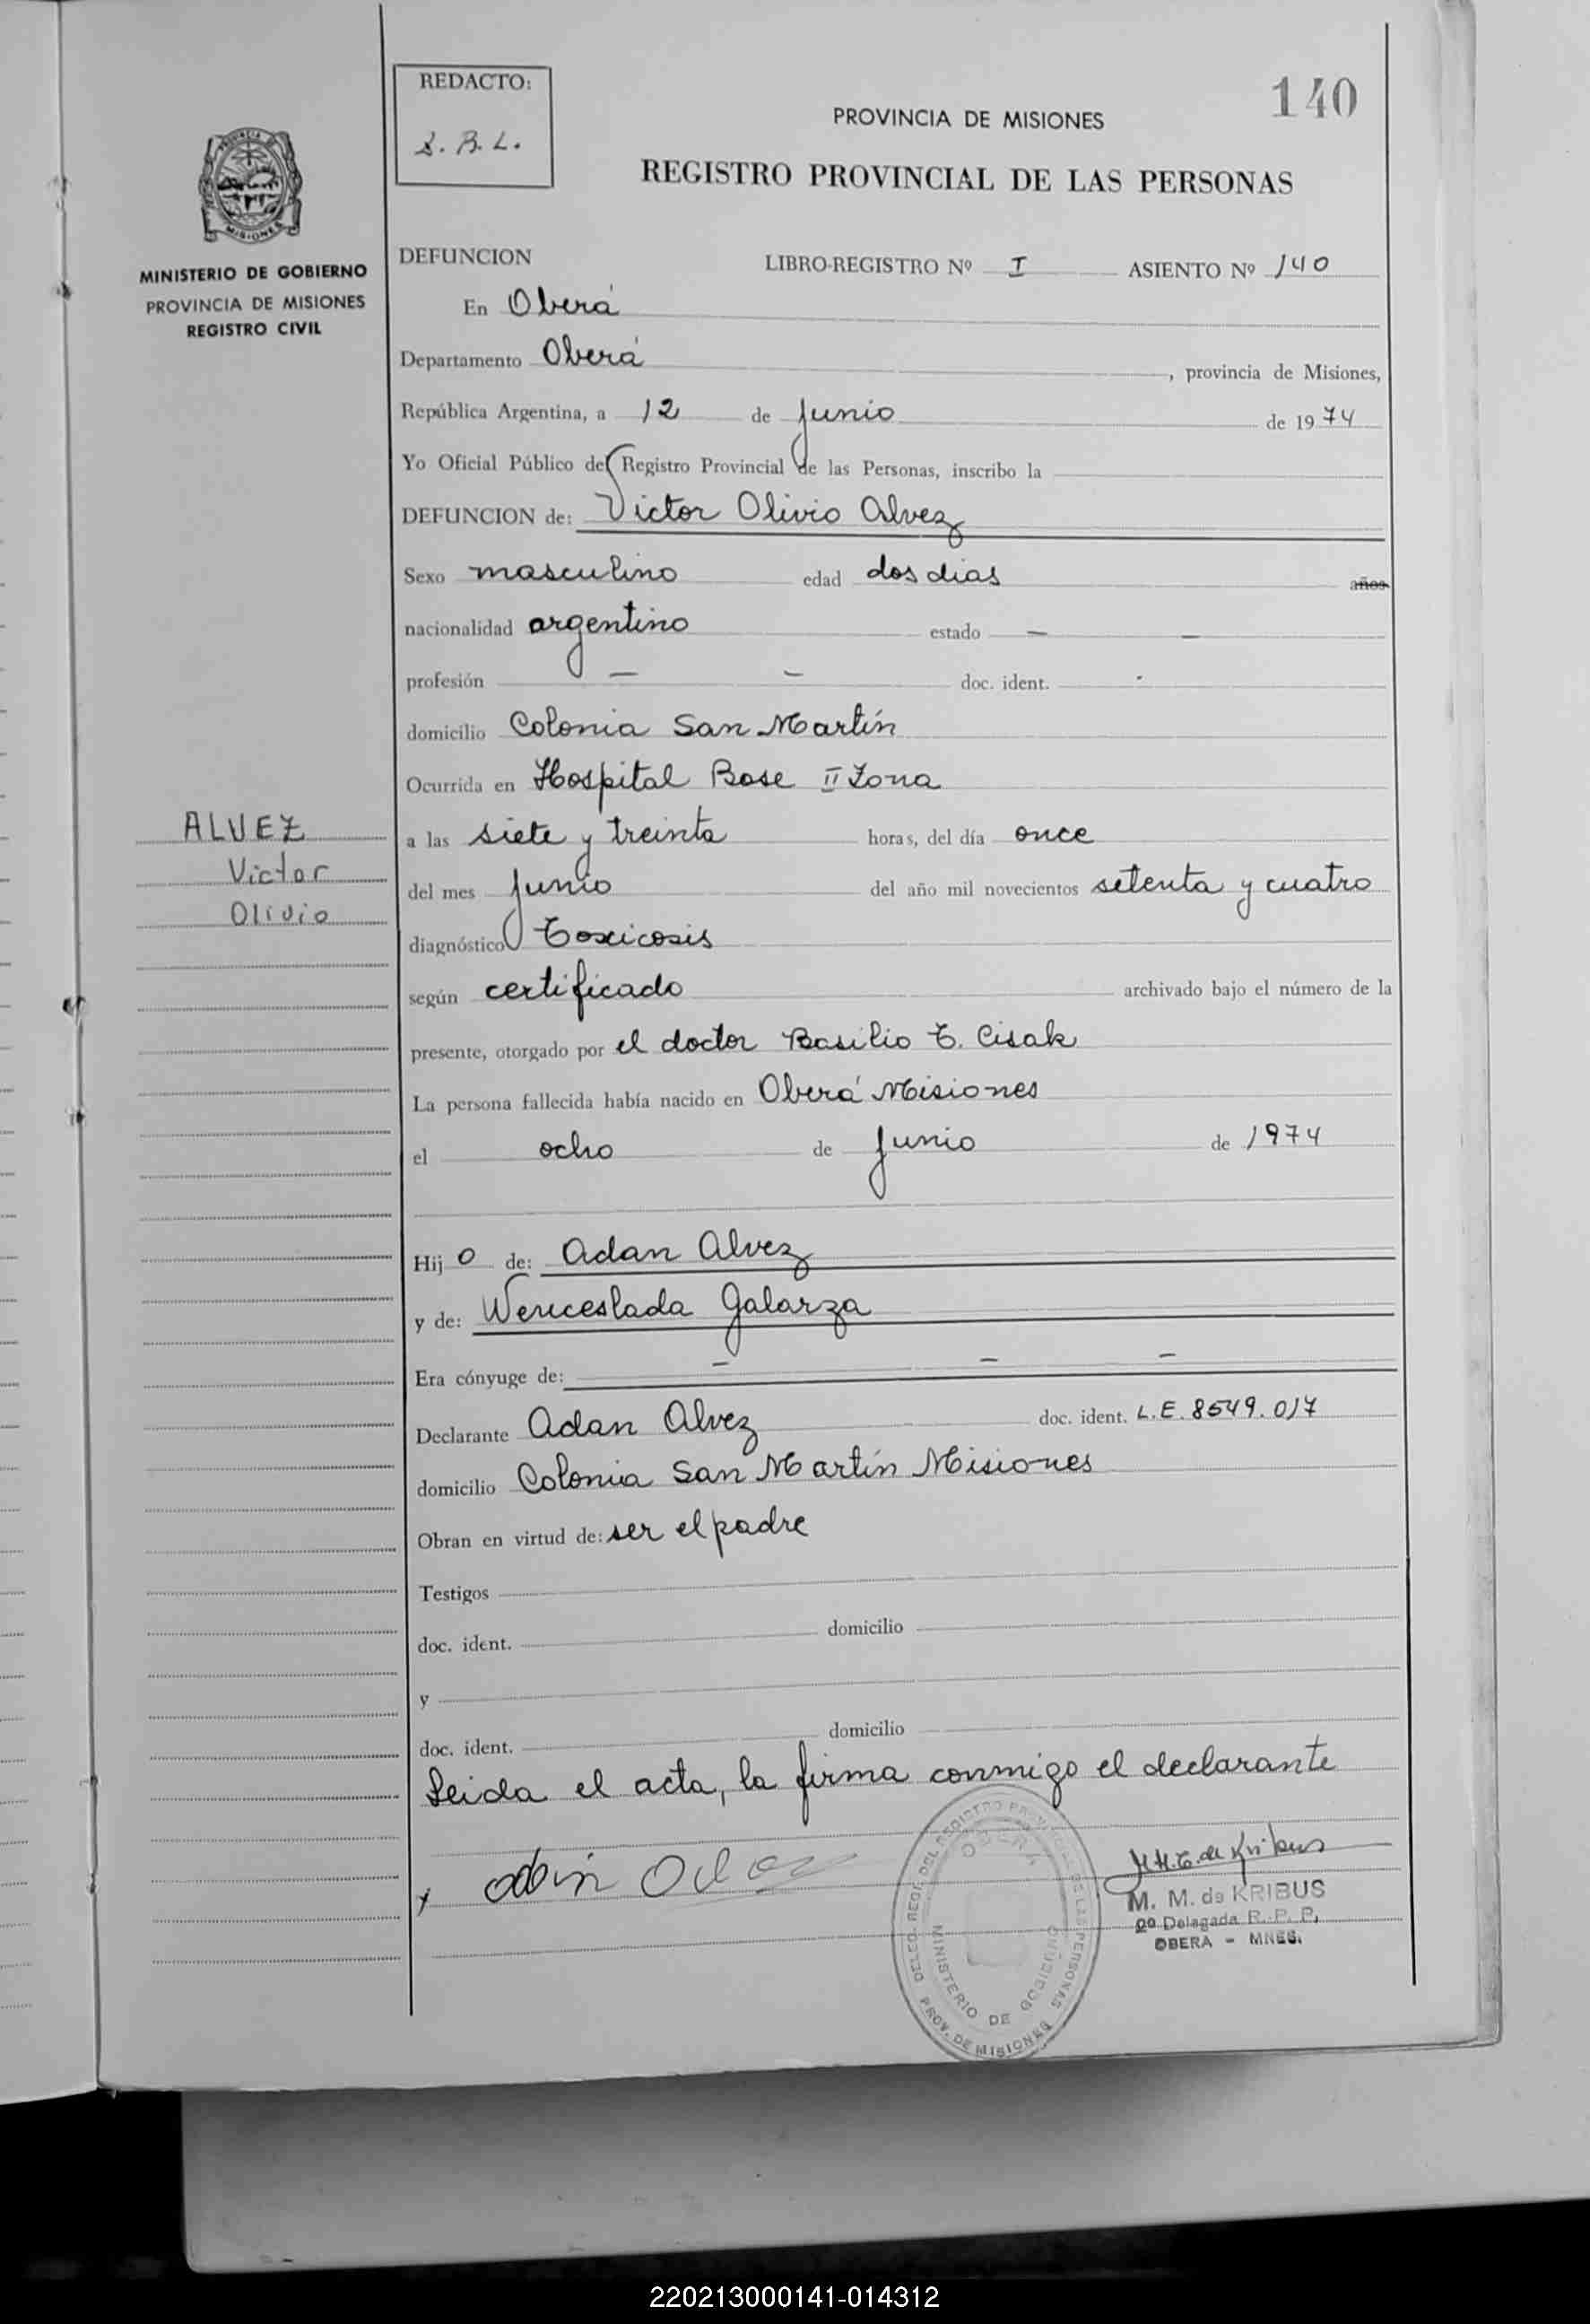 140
REDACTO:
S. B. L.
PROVINCIA DE MISIONES
REGISTRO PROVINCIAL DE LAS PERSONAS
MISIONES
MINISTERIO DE GOBIERNO
PROVINCIA DE MISIONES
REGISTRO CIVIL
DEFUNCION LIBRO-REGISTRO Nº I ASIENTO Nº 140
En Oberá
Departamento Oberá, provincia de Misiones,
República Argentina, a 12 de Junio de 1974
Yo Oficial Público del Registro Provincial de las Personas, inscribo la
DEFUNCION de: Victor Olivio Alvez
Sexo masculino edad dos dias años
nacionalidad argentino estado — —
profesión — — doc. ident. -
domicilio Colonia San Martín
Ocurrida en Hospital Base II Zona
ALVEZ
Victor
Olivio
a las siete y treinta horas, del día once
del mes Junio del año mil novecientos setenta y cuatro
diagnóstico Toxicosis
según certificado archivado bajo el número de la
presente, otorgado por el doctor Basilio T. Cisak
La persona fallecida había nacido en Oberá Misiones
el ocho de Junio de 1974
Hij o de: Adan Alvez
y de: Wenceslada Galarza
Era cónyuge de: — — —
Declarante Adan Alvez doc. ident. L.E. 8549.017
domicilio Colonia San Martín Misiones
Obran en virtud de: ser el padre
Testigos
doc. ident. domicilio
y
doc. ident. domicilio
Leida el acta, la firma conmigo el declarante
M. M. de KRIBUS
2º Delegada R. P. P.
OBERA - MNES.
OBERA
MINISTERIO DE GOBIERNO
PROV. DE MISIONES
220213000141-014312